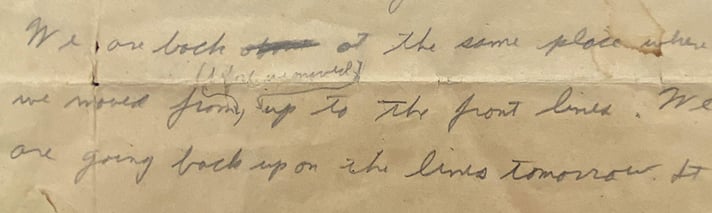 We are back at the same place where
(before we moved)
we moved from, up to the front lines. We
are going back up on the lines tomorrow. It